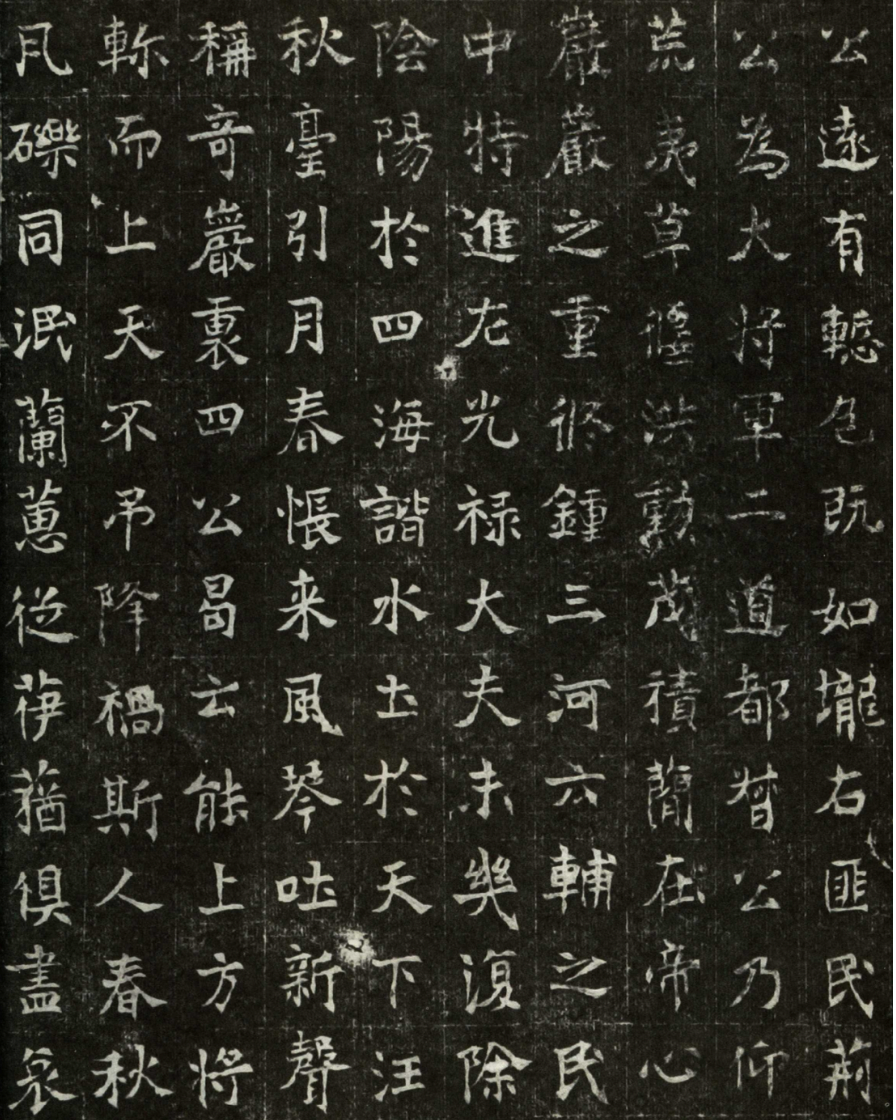 公遠有慙色既如壠右匪民荊
公為大将軍二道都督公乃仰
荒夷草偃洪勳茂積蕳在帝心
巖巖之重鍾三河六輔之民
中特進左光禄大夫未幾復除
陰陽於四海諧水土於天下汪
秋臺引月春悵来風琴吐新聲
稱奇巖裏四公曷云能上方将
軫而上天不吊降禍斯人春秋
瓦礫同泯蘭蕙従蕕俱盡哀